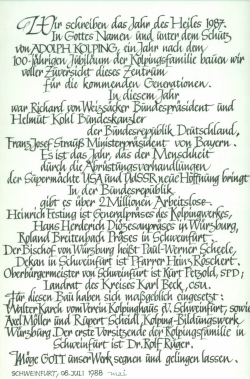 Wir schreiben das Jahr des Heiles 1987.
In Gottes Namen und unter dem Schutz
von ADOLPH KOLPING, ein Jahr nach dem
100-jährigen Jubiläum der Kolpingsfamilie bauen wir
voller Zuversicht dieses Zentrum
für die kommenden Generationen.
In diesem Jahr
war Richard von Weizsäcker Bundespräsident und
Helmut Kohl Bundeskanzler
der Bundesrepublik Deutschland,
Franz Josef Strauß Ministerpräsident von Bayern.
Es ist das Jahr, das der Menschheit
durch die Abrüstungsverhandlungen
der Supermächte USA und UdSSR neue Hoffnung bringt
In der Bundesrepublik
gibt es über 2 Millionen Arbeitslose.
Heinrich Festing ist Generalpräses des Kolpingwerkes,
Hans Herderich Diözesanpräses in Würzburg,
Roland Breitenbach Präses in Schweinfurt
Der Bischof von Würzburg heißt Paul-Werner Scheele,
Dekan in Schweinfurt ist Pfarrer Heinz Röschert.
Oberbürgermeister von Schweinfurt ist Kurt Petzold, SPD;
Landrat des Kreises Karl Beck, CSU.
Für diesen Bau haben sich maßgeblich eingesetzt:
Walter Karch vom Verein Kolpinghaus e.V. Schweinfurt, sowie
Axel Möller und Rupert Scheidl, Kolping-Bildungswerk
Würzburg. Der erste Vorsitzende der Kolpingsfamilie in
Schweinfurt ist Dr. Rolf Rüger.
Möge GOTT unser Werk segnen und gelingen lassen.
SCHWEINFURT, 08. JULI 1988